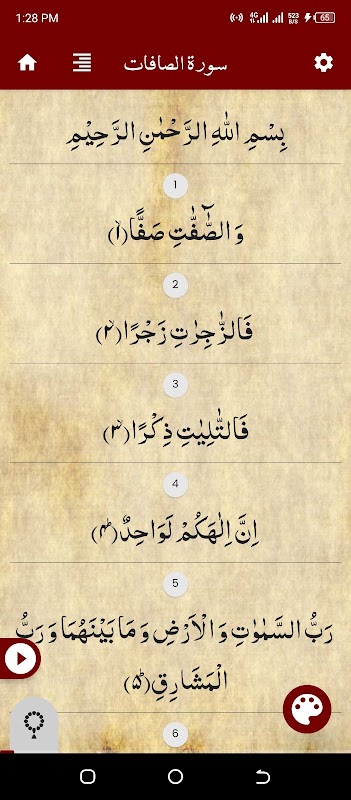 1:28 PM 4G 523 B/S 65
سورة الصافات
بِسْمِ اللّٰهِ الرَّحْمٰنِ الرَّحِیْمِ
1
وَ الصّٰٓفّٰتِ صَفًّاۙ(۱)
2
فَالزّٰجِرٰتِ زَجْرًاۙ(۲)
3
فَالتّٰلِیٰتِ ذِكْرًاۙ(۳)
4
اِنَّ اِلٰهَكُمْ لَوَاحِدٌؕ(۴)
5
رَبُّ السَّمٰوٰتِ وَ الْاَرْضِ وَ مَا بَیْنَهُمَا وَ رَبُّ
الْمَشَارِقِؕ(۵)
6